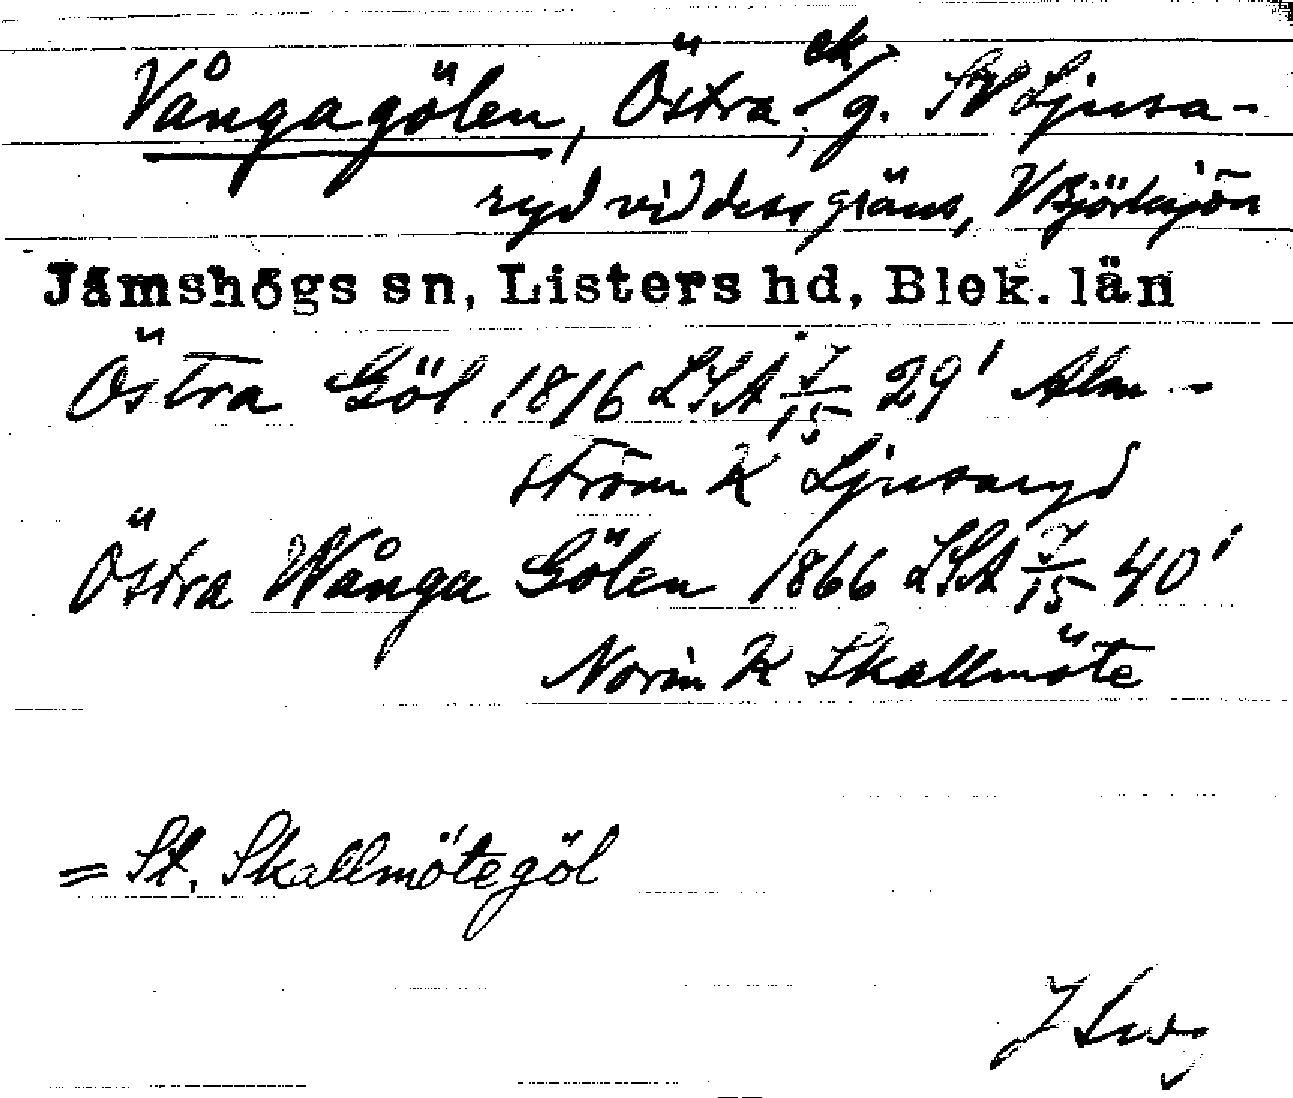 Vångagölen, Östra, ek/g. SV Ljusa-
ryd vid dess gräns, V Björksjön
Jämshögs sn, Listers hd, Blek. län
Östra Göl 1816 LSA J/15 29' Alm-
ström K Ljusaryd
Östra Wånga Gölen 1866 LSA J/15 40'
Norin K Skallmöte
= St. Skallmötegöl